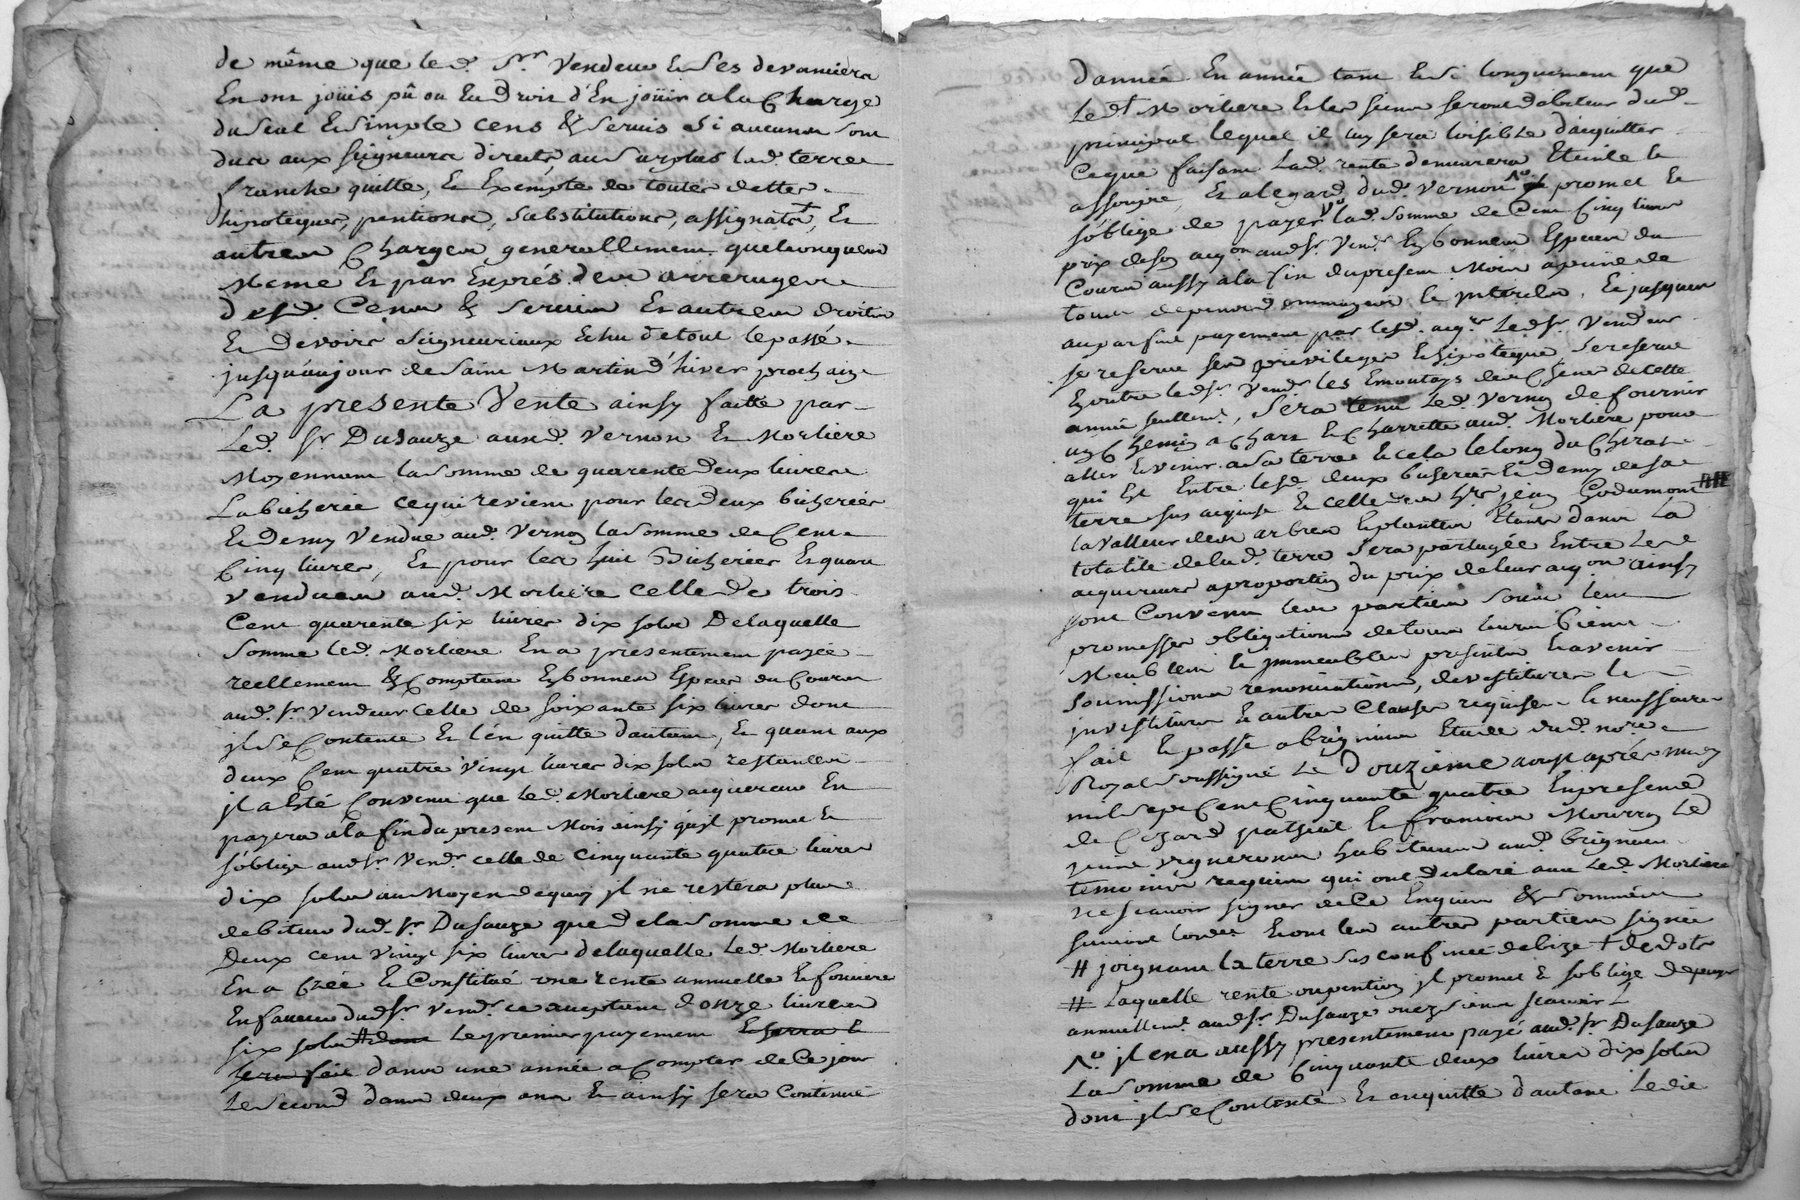 de même que led. Sr. Vendeur & Ses devanciers
En ont joüis pû ou Eu Droit d'En joüir a la Charge
du Seul & simple cens & servis Si aucuns sont
dus aux seigneurs directs, au Surplus lad. terre
franche quitte, & Exempte de toutes dettes
hipoteques, pentions, substitutions, assignats, Et
autres Charges generallement quelconques
Meme Et par Exprés des arrerages
desd. Cens & Servis Et autres droits
Et Devoirs Seigneuriaux Echu de tout le passé
jusqu'au jour de Saint Martin d'hiver prochain
La presente Vente ainsy faitte par
Led. Sr Dusauze auxd. Vernon Et Morliere
Moyennant la somme de quarente deux livres
La bicherée ce qui revient pour les deux bicherées
Et Demy Vendue aud. Vernon la somme de Cent
Cinq livres, Et pour les huit Bicherées Et quart
vendues aud. Morliere celle de trois
Cent quarente six livres dix sols De laquelle
Somme led. Morliere En a presentement payée
reellement & Comptant En bonnes Especes du Cours
aud. Sr vendeur celle de soixante six livres dont
jl se Contente Et l'en quitte d'autant, Et quant aux
deux Cent quatre vingt livres dix sols restantes
jl a Esté Convenu que led. Morliere acquereur En
payera a la fin du present Mois ainsy qu'jl promet &
s'oblige aud Sr. Vendr celle de Cinquante quatre livres
dix sols au Moyen de quoy jl ne restera plus
debiteur dud. Sr Dusauze que de la somme de
Deux cent vingt six livres de laquelle led. Morliere
En a Créé & Constitué une rente annuelle & fonciere
En faveur dud Sr. Vendr. ce acceptant d'onze livres
six sols # dont le premier payement Et serra &
sera fait dans une année a Compter de Ce jour
le Second dans deux ans Et ainsy sera Continué
d'année En année tant & si longuement que
Led. Morliere Et les siens seront debiteur dud.
principal lequel il luy sera loisible d'acquitter
Ce que faisant Lad. rente demeurera Eteinte &
assoupie, Et a l'egard dud. Vernon promet &
s'oblige de payer lad. Somme de Cent Cinq livres
prix de son aqon aud Sr. Vendr. En bonnes Especes du
Cours aussy a la fin du present Mois a peine de
tous depens dommages & jnterets, Et jusques
au parfait payement par lesd. aqrs. Led Sr. Vendeur
se reserve ses privileges & hipoteque, se reserve
En outre led Sr. Vendr les Emontags des Chenes de cette
année seullemt, Sera tenu Led. Vernon de fournir
un Chemin a Chars & Charrette aud. Morliere pour
aller & venir a sa terre & cela le long du Chirat
qui Est Entre lesd. deux bicherées & demy de sa
terre sus acquise & celle des hrs jean Godumont
la Valleur des arbres & plantes Etants dans La
totalité de lad. terre Sera partagée Entre les
acquereurs a proportion du prix de leur aqon ainsy
sont Convenu les parties sous leur
promesses obligations de tous leurs biens
Meubles & jmmeubles presents & avenir
soumissions renonciations, devestitures &
jnvestitures & autres Clauses requises & necessaires
fait & passé a brignais Etude dud. nore.
Royal soussigné Le Douzieme aoust après midy
mil sept Cent Cinquante quatre En presence
de Cezard & francois Mourron Le
jeune vignerons habitants aud. brignais
temoins requis qui ont declaré avec led. Morliere
ne sçavoir signer de Ce Enquis & sommés
suivant l'ordce Et ont les autres parties signés
# joignant la terre sus confinée de bize + de dots
# laquelle rente ou pention jl promet & s'oblige de payer
annuellemt. aud Sr. Dusauze ou ez siens scavoir &
No. jl en a aussy presentement payé aud. Sr Dusauze
La somme de Cinquante deux livres dix sols
dont jl se Contente Et en quitte d'autant Ledit